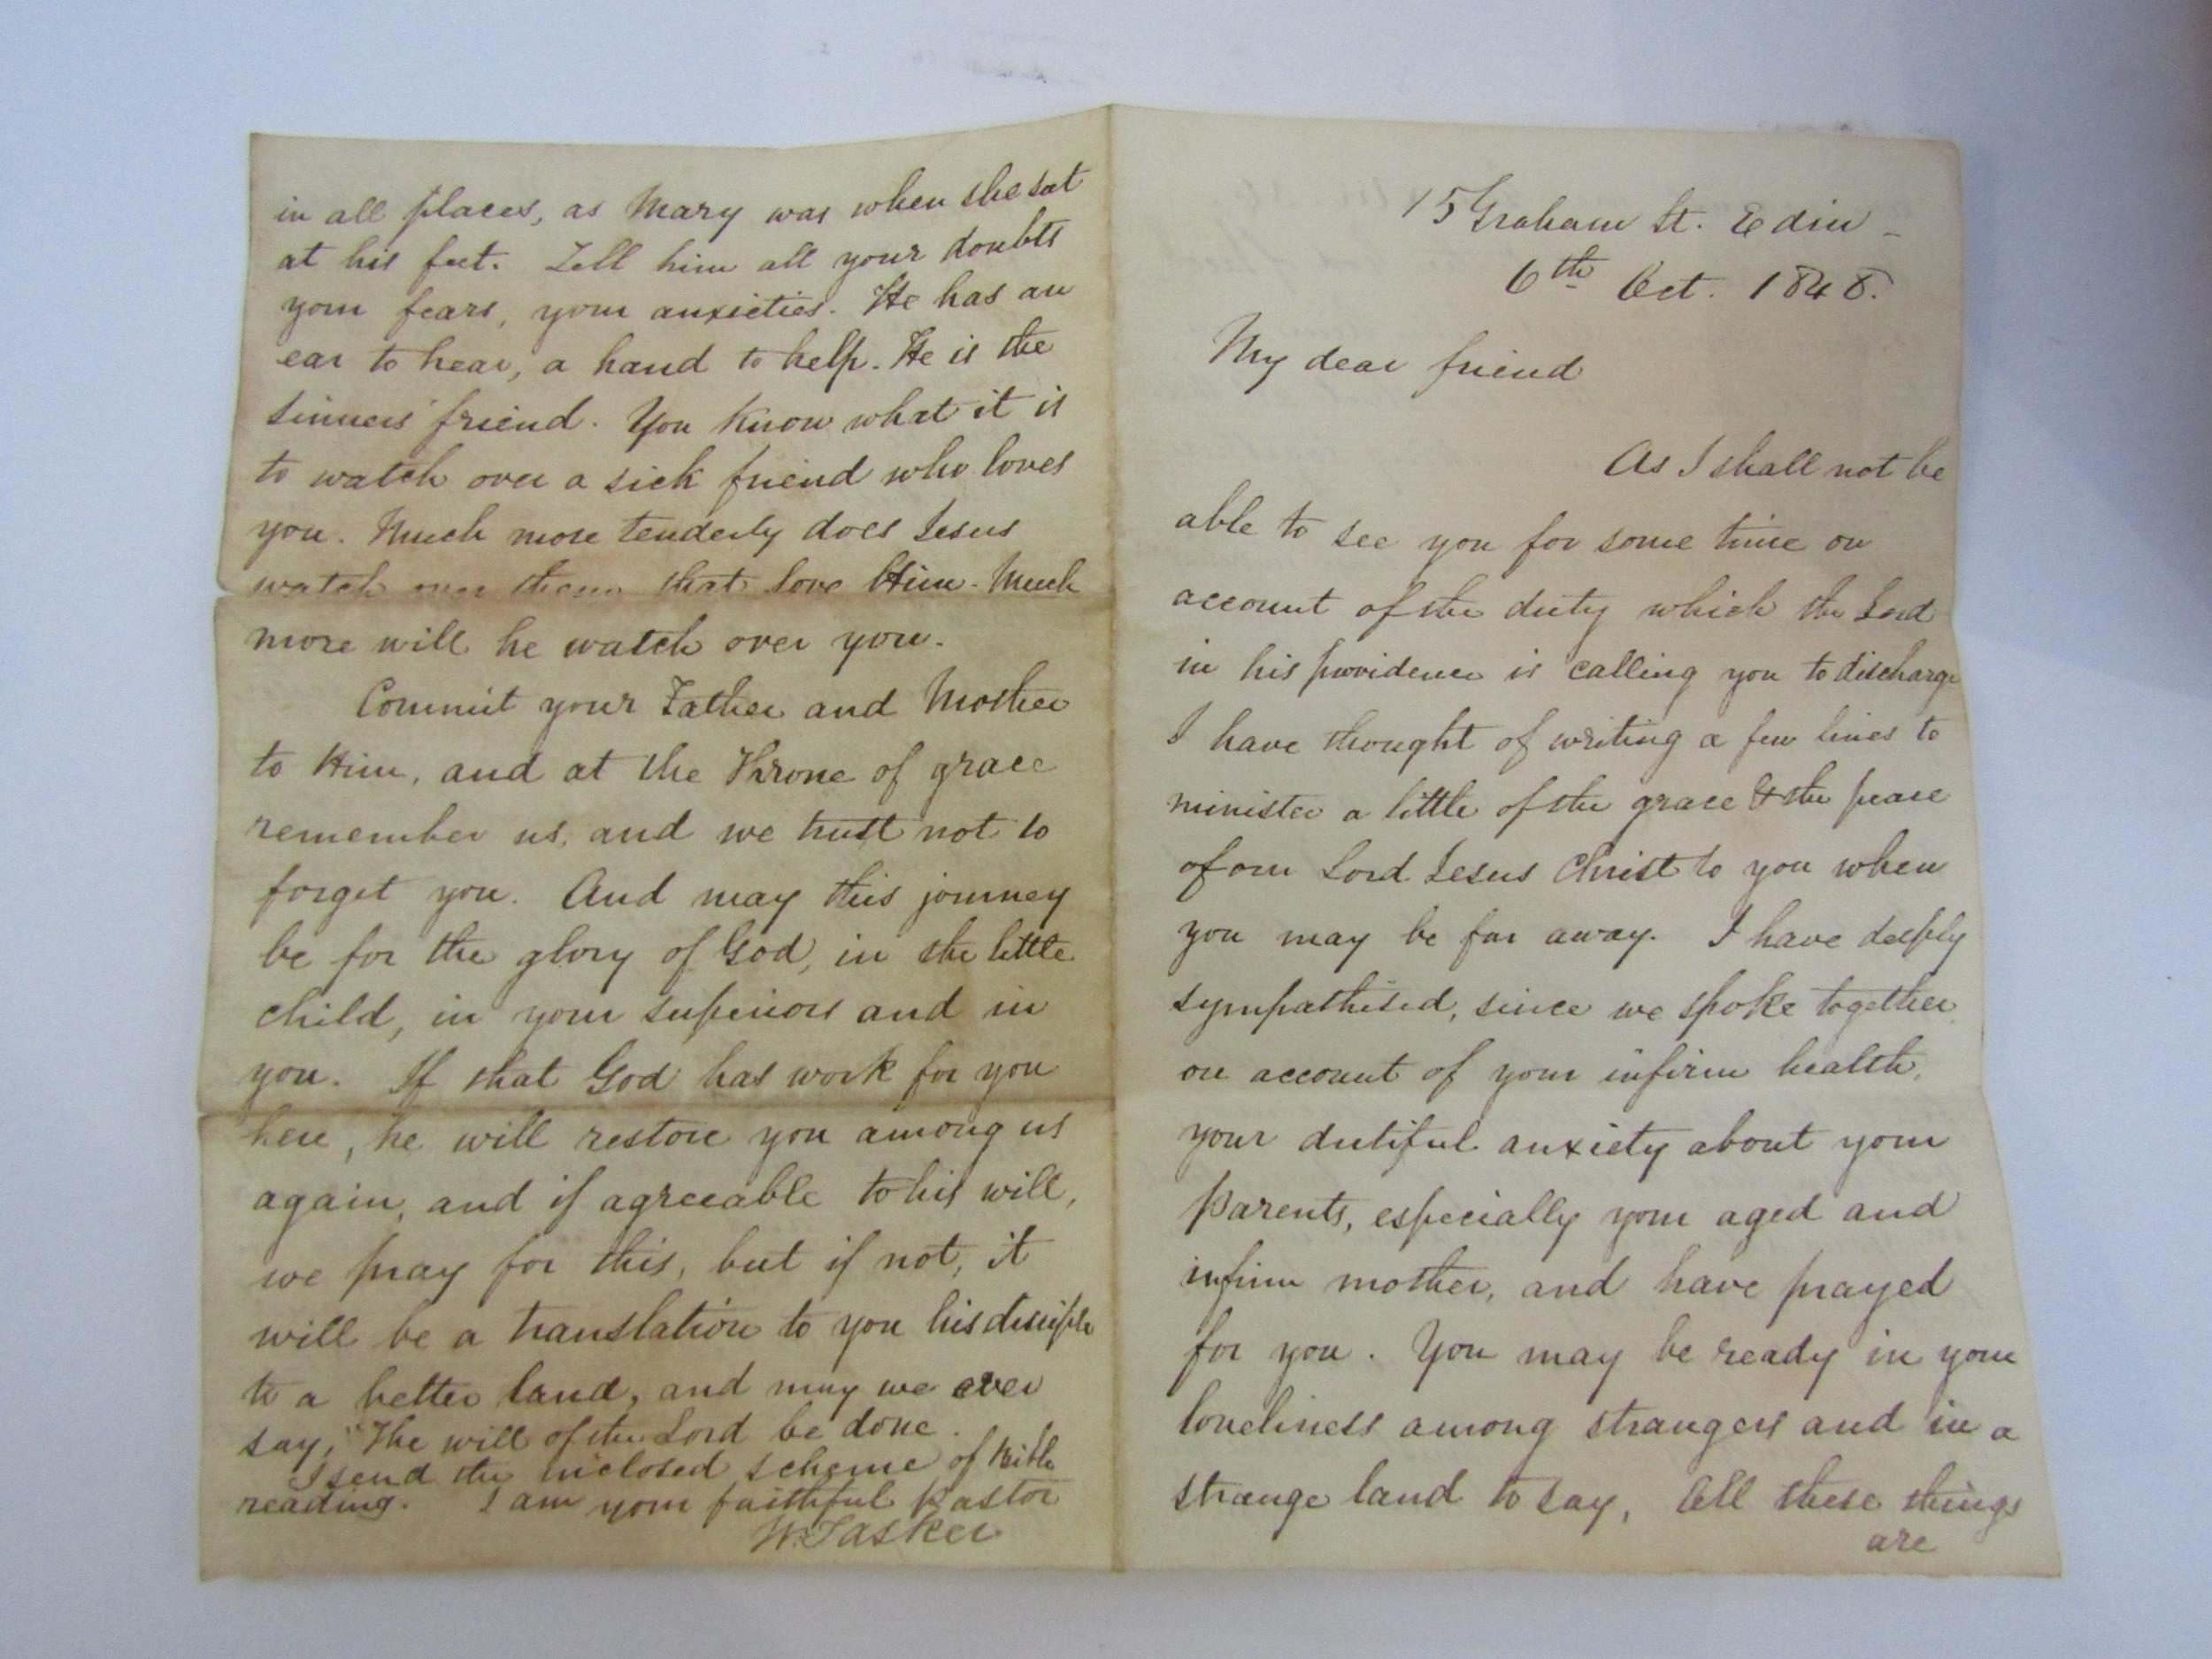 15 Graham St. Edin -
6th Oct. 1848.
My dear friend
As I shall not be
able to see you for some time on
account of the duty which the Lord
in his providence is calling you to discharge
I have thought of writing a few lines to
minister a little of the grace & the peace
of our Lord Jesus Christ to you when
you may be far away. I have deeply
sympathised, since we spoke together
on account of your infirm health,
your dutiful anxiety about your
parents, especially your aged and
infirm mother, and have prayed
for you. You may be ready in your
loneliness among strangers and in a
strange land to say, All these things
are
in all places, as Mary was when she sat
at his feet. Tell him all your doubts
your fears, your anxieties. He has an
ear to hear, a hand to help. He is the
sinners' friend. You know what it is
to watch over a sick friend who loves
you. Much more tenderly does Jesus
watch over them that love Him. Much
more will he watch over you.
Commit your Father and Mother
to Him, and at the Throne of grace
remember us, and we trust not to
forget you. And may this journey
be for the glory of God, in the little
child, in your superiors and in
you. If that God has work for you
here, he will restore you among us
again, and if agreeable to his will,
we pray for this, but if not, it
will be a translation to you his disciple
to a better land, and may we ever
say, "The will of the Lord be done.
I send the inclosed scheme of Bible
reading. I am your faithful Pastor
W. Tasker